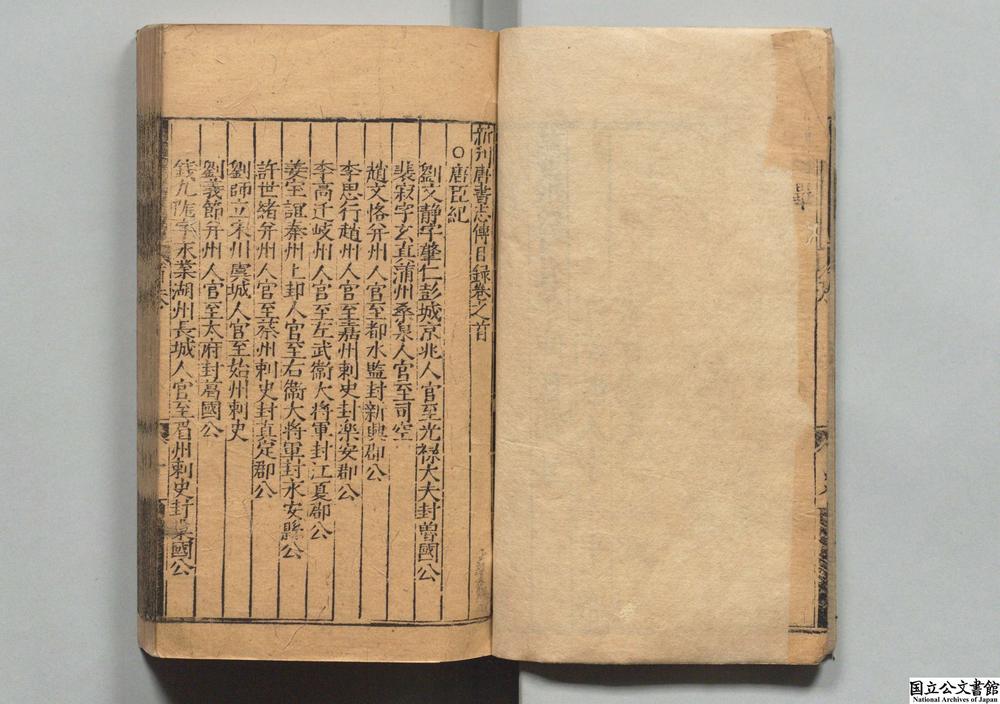 新刊唐書志傳目録卷之首
○唐臣紀
劉文静字肇仁彭城京兆人官至光禄大夫封魯國公
裴寂字玄真蒲州桑泉人官至司空
趙文恪并州人官至都水監封新興郡公
李思行趙州人官至嘉州刺史封楽安郡公
李高迁岐州人官至左武衞大將軍封江夏郡公
姜宝誼秦州上邽人官至右衞大將軍封永安縣公
許世緒并州人官至蔡州刺史封真定郡公
劉師立宋州虞城人官至始州刺史
劉義節并州人官至太府封葛國公
錢九隴字永業湖州長城人官至眉州刺史封巢國公
国立公文書館
National Archives of Japan